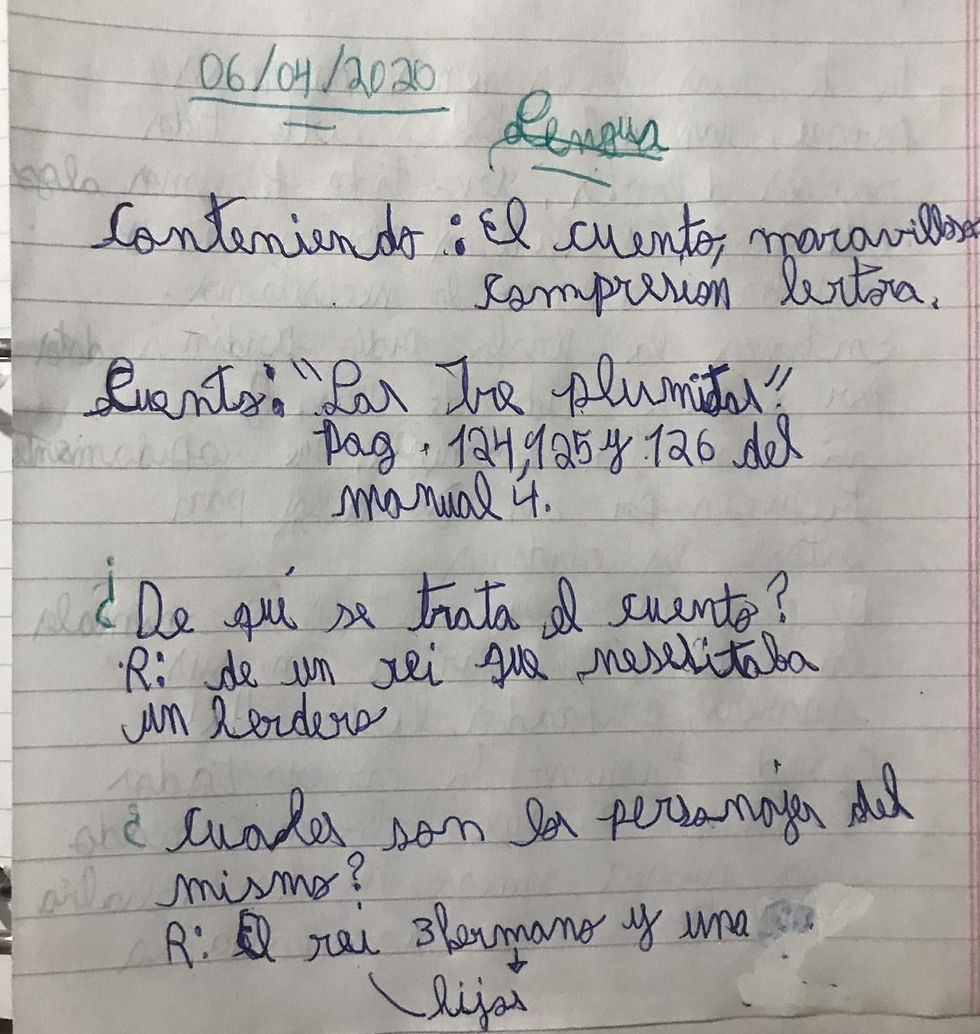 06/04/2020
Lengua
Conteniendo: El cuento, maravilloso
compresion lertora.
Cuento: "Las tre plumitas"
Pag. 124, 125 y 126 del
manual 4.
¿De qué se trata el cuento?
R: de un rei que nesesitaba
un herdero
¿Cuales son los personajes del
mismo?
R: El rei 3 hermano y una
hijos